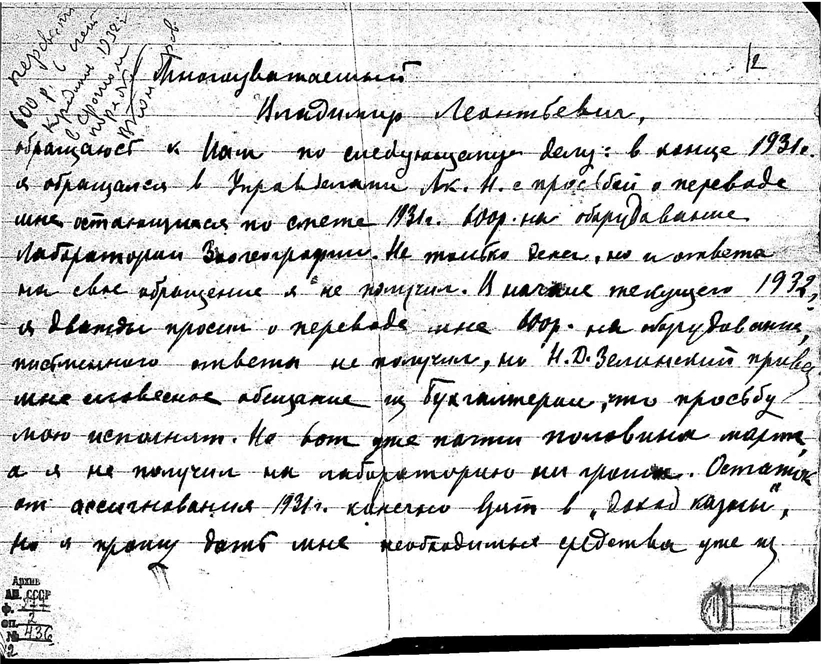 перевести
600 р. в счет
кредитов 1932 г.
12
Многоуважаемый
Владимир Леонтьевич,
обращаюсь к Вам по следующему делу: в конце 1931 г.
я обращался в Управделами Ак. Н. с просьбой о переводе
мне остающихся по смете 1931 г. 600р. на оборудование
Лаборатории Зоогеографии. Не только денег, но и ответа
на свое обращение я не получил. В начале текущего 1932 г.
я дважды просил о переводе мне 600р. на оборудование,
письменного ответа не получил, но Н.Д. Зелинский привез
мне словесное обещание из бухгалтерии, что просьбу
мою исполнят. Но вот уже почти половина марта,
а я не получил на лабораторию ни гроша. Остаток
от ассигнования 1931 г. конечно взят в „доход казны",
но я прошу дать мне необходимые средства уже из
Архив
АН СССР
ф. 277
оп. 2
№ 436